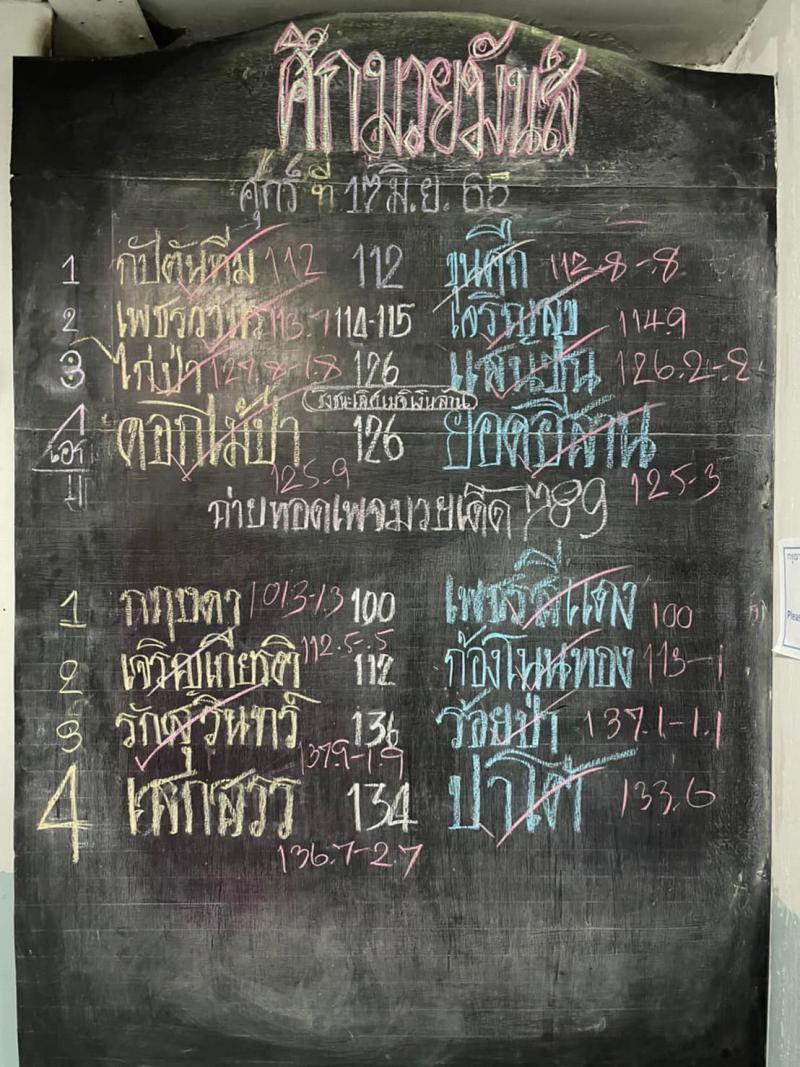 ศึกมวยมันส์
ศุกร์ ที่ 17 มิ.ย. 65
1 กัปตันทีม 112 112 ขุนศึก 112.8-.8
2 113.7 114-115 เจริญสุข 114.9
3 ไก่ป่า 127.8-1.8 126 แสนปืน 126.2-.2
รุ่งชนะเลิศเมจิเงินล้าน
4 ดอกไม้ป่า 126 ยอดอีสาน
125.9 125-3
ถ่ายทอดเพจมวยเด็ด 789
1 กฤษดา 101.3-1.3 100 เพชรสีแดง 100
2 เจริญเกียรติ 112.5-.5 112 ก้องโนนทอง 113-1
3 รักสุรินทร์ 136 ร้อยป่า 137.1-1.1
137.9-1.9
4 เสกสรร 134 ปาโต้ 133.6
136.7-2.7
Please